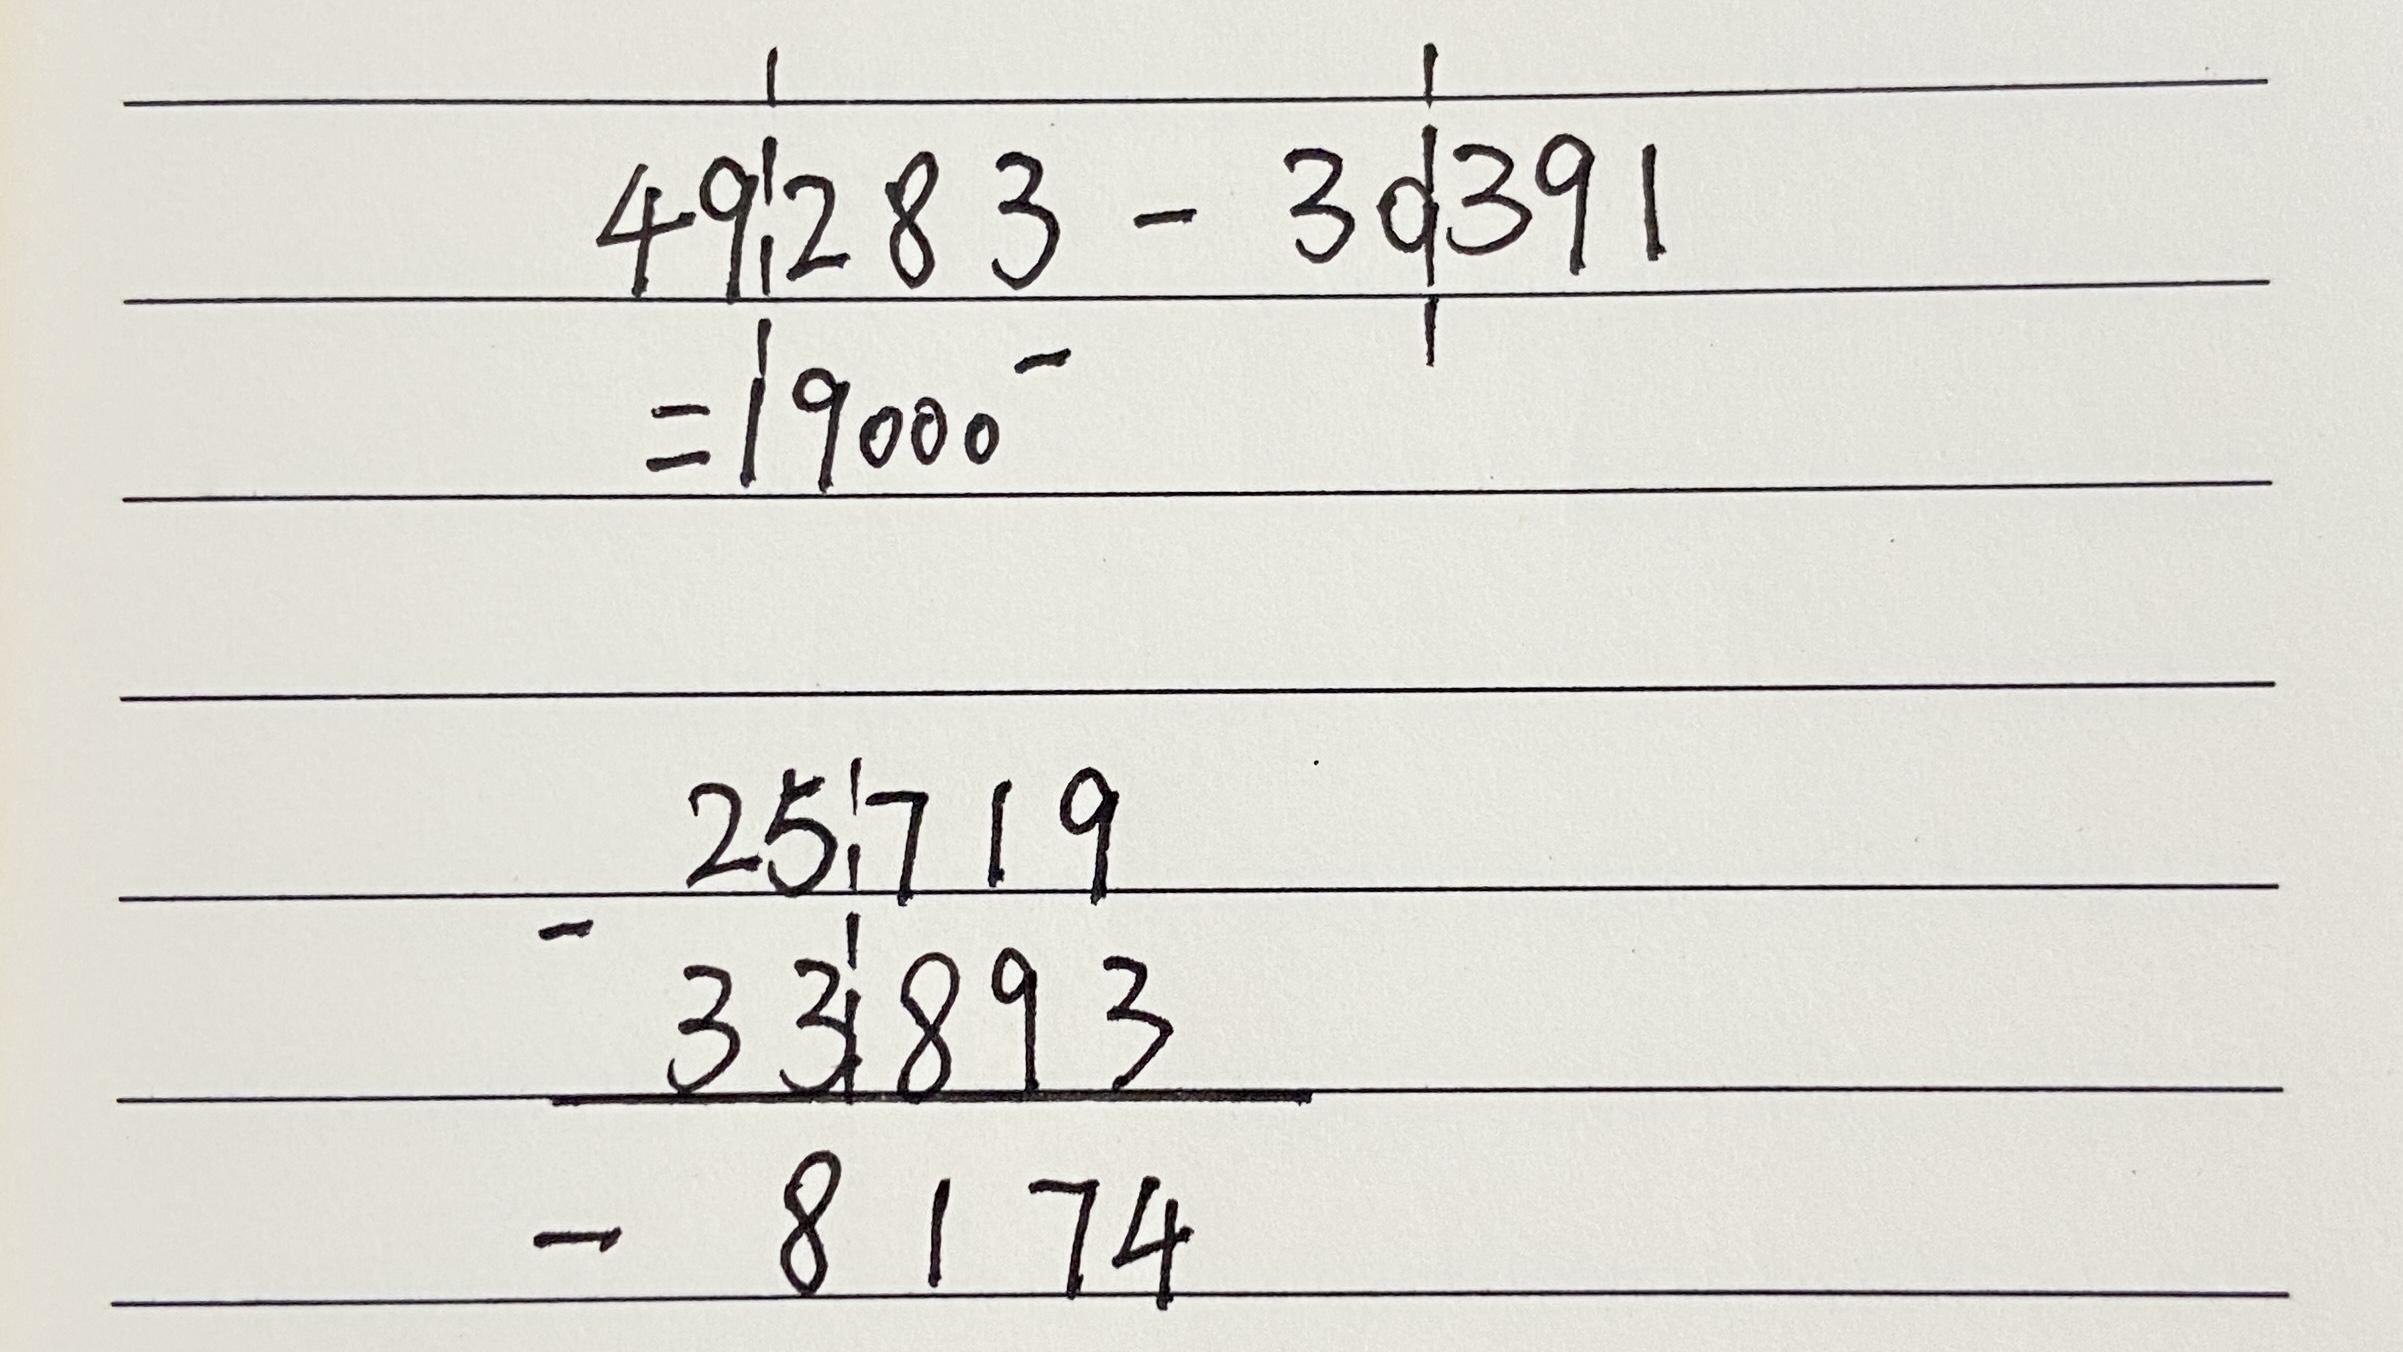 49283 - 30391
= 19000⁻
25719
- 33893
- 8174